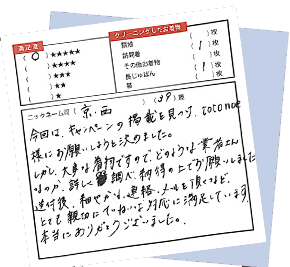 満足度
(○)★★★★★
( )★★★★
( )★★★
( )★★
( )★
クリーニングしたお着物
訪問着
その他お着物 (1)枚
長じゅばん (1)枚
帯 ( )枚
ニックネーム覧 (京・西) (39)歳
今回は、キャンペーンの掲載を見つけ、totonoe
様にお願いしようと決めました。
しかし、大事な着物ですので、どのような業者さん
なのか、詳しく調べ、納得の上でお願いしました
送付後、細やかな連絡、メールを頂くなど、
とても親切にていねいな対応に満足しています。
本当にありがとうございました。